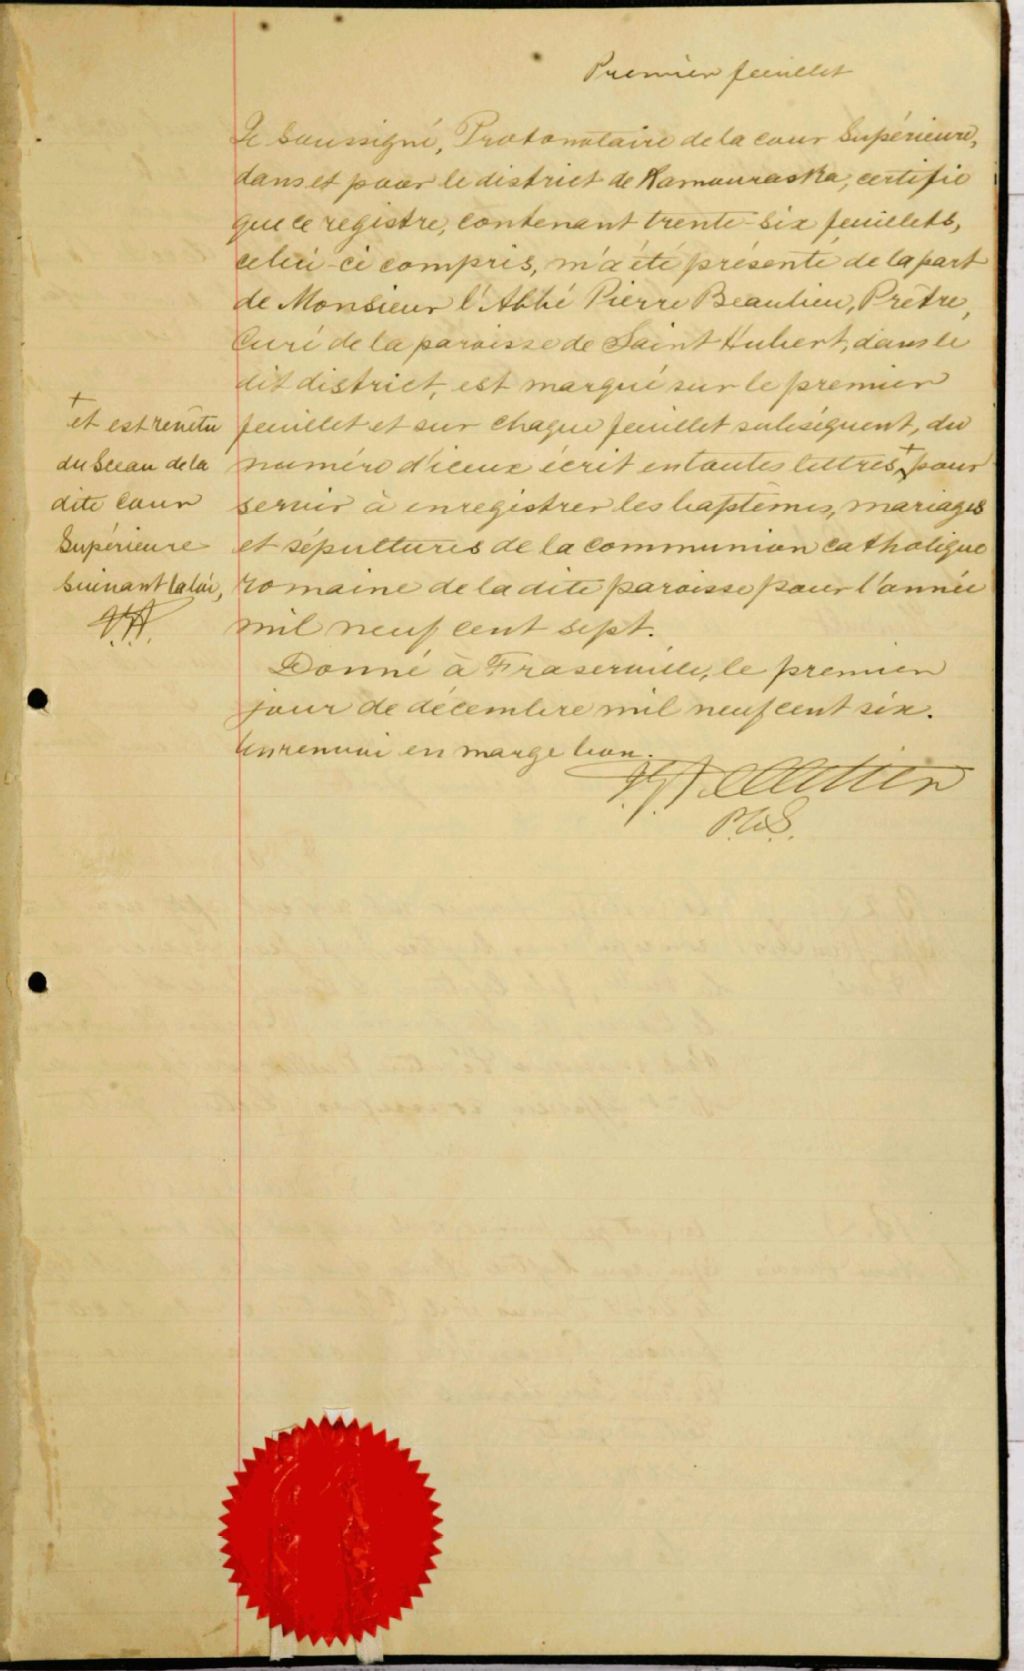 Premier feuillet
Je Soussigné, Protonotaire de la cour Supérieure,
dans et pour le district de Kamouraska, certifie
que ce registre, contenant trente-six feuillets,
celui-ci compris, m'a été présenté de la part
de Monsieur l'Abbé Pierre Beaulieu, Prêtre,
Curé de la paroisse de Saint Hubert, dans le
dit district, est marqué sur le premier
feuillet et sur chaque feuillet subséquent, du
numéro d'iceux écrit en toutes lettres + pour
servir à enregistrer les baptêmes, mariages
et sépultures de la communion catholique
romaine de la dite paroisse pour l'année
mil neuf cent sept.
+
et est revêtu
du Sceau de la
dite Cour
Supérieure
suivant la loi,
Donné à Fraserville, le premier
jour de décembre mil neuf cent six.
Un renvoi en marge bon.
Pelletier
P.C.S.